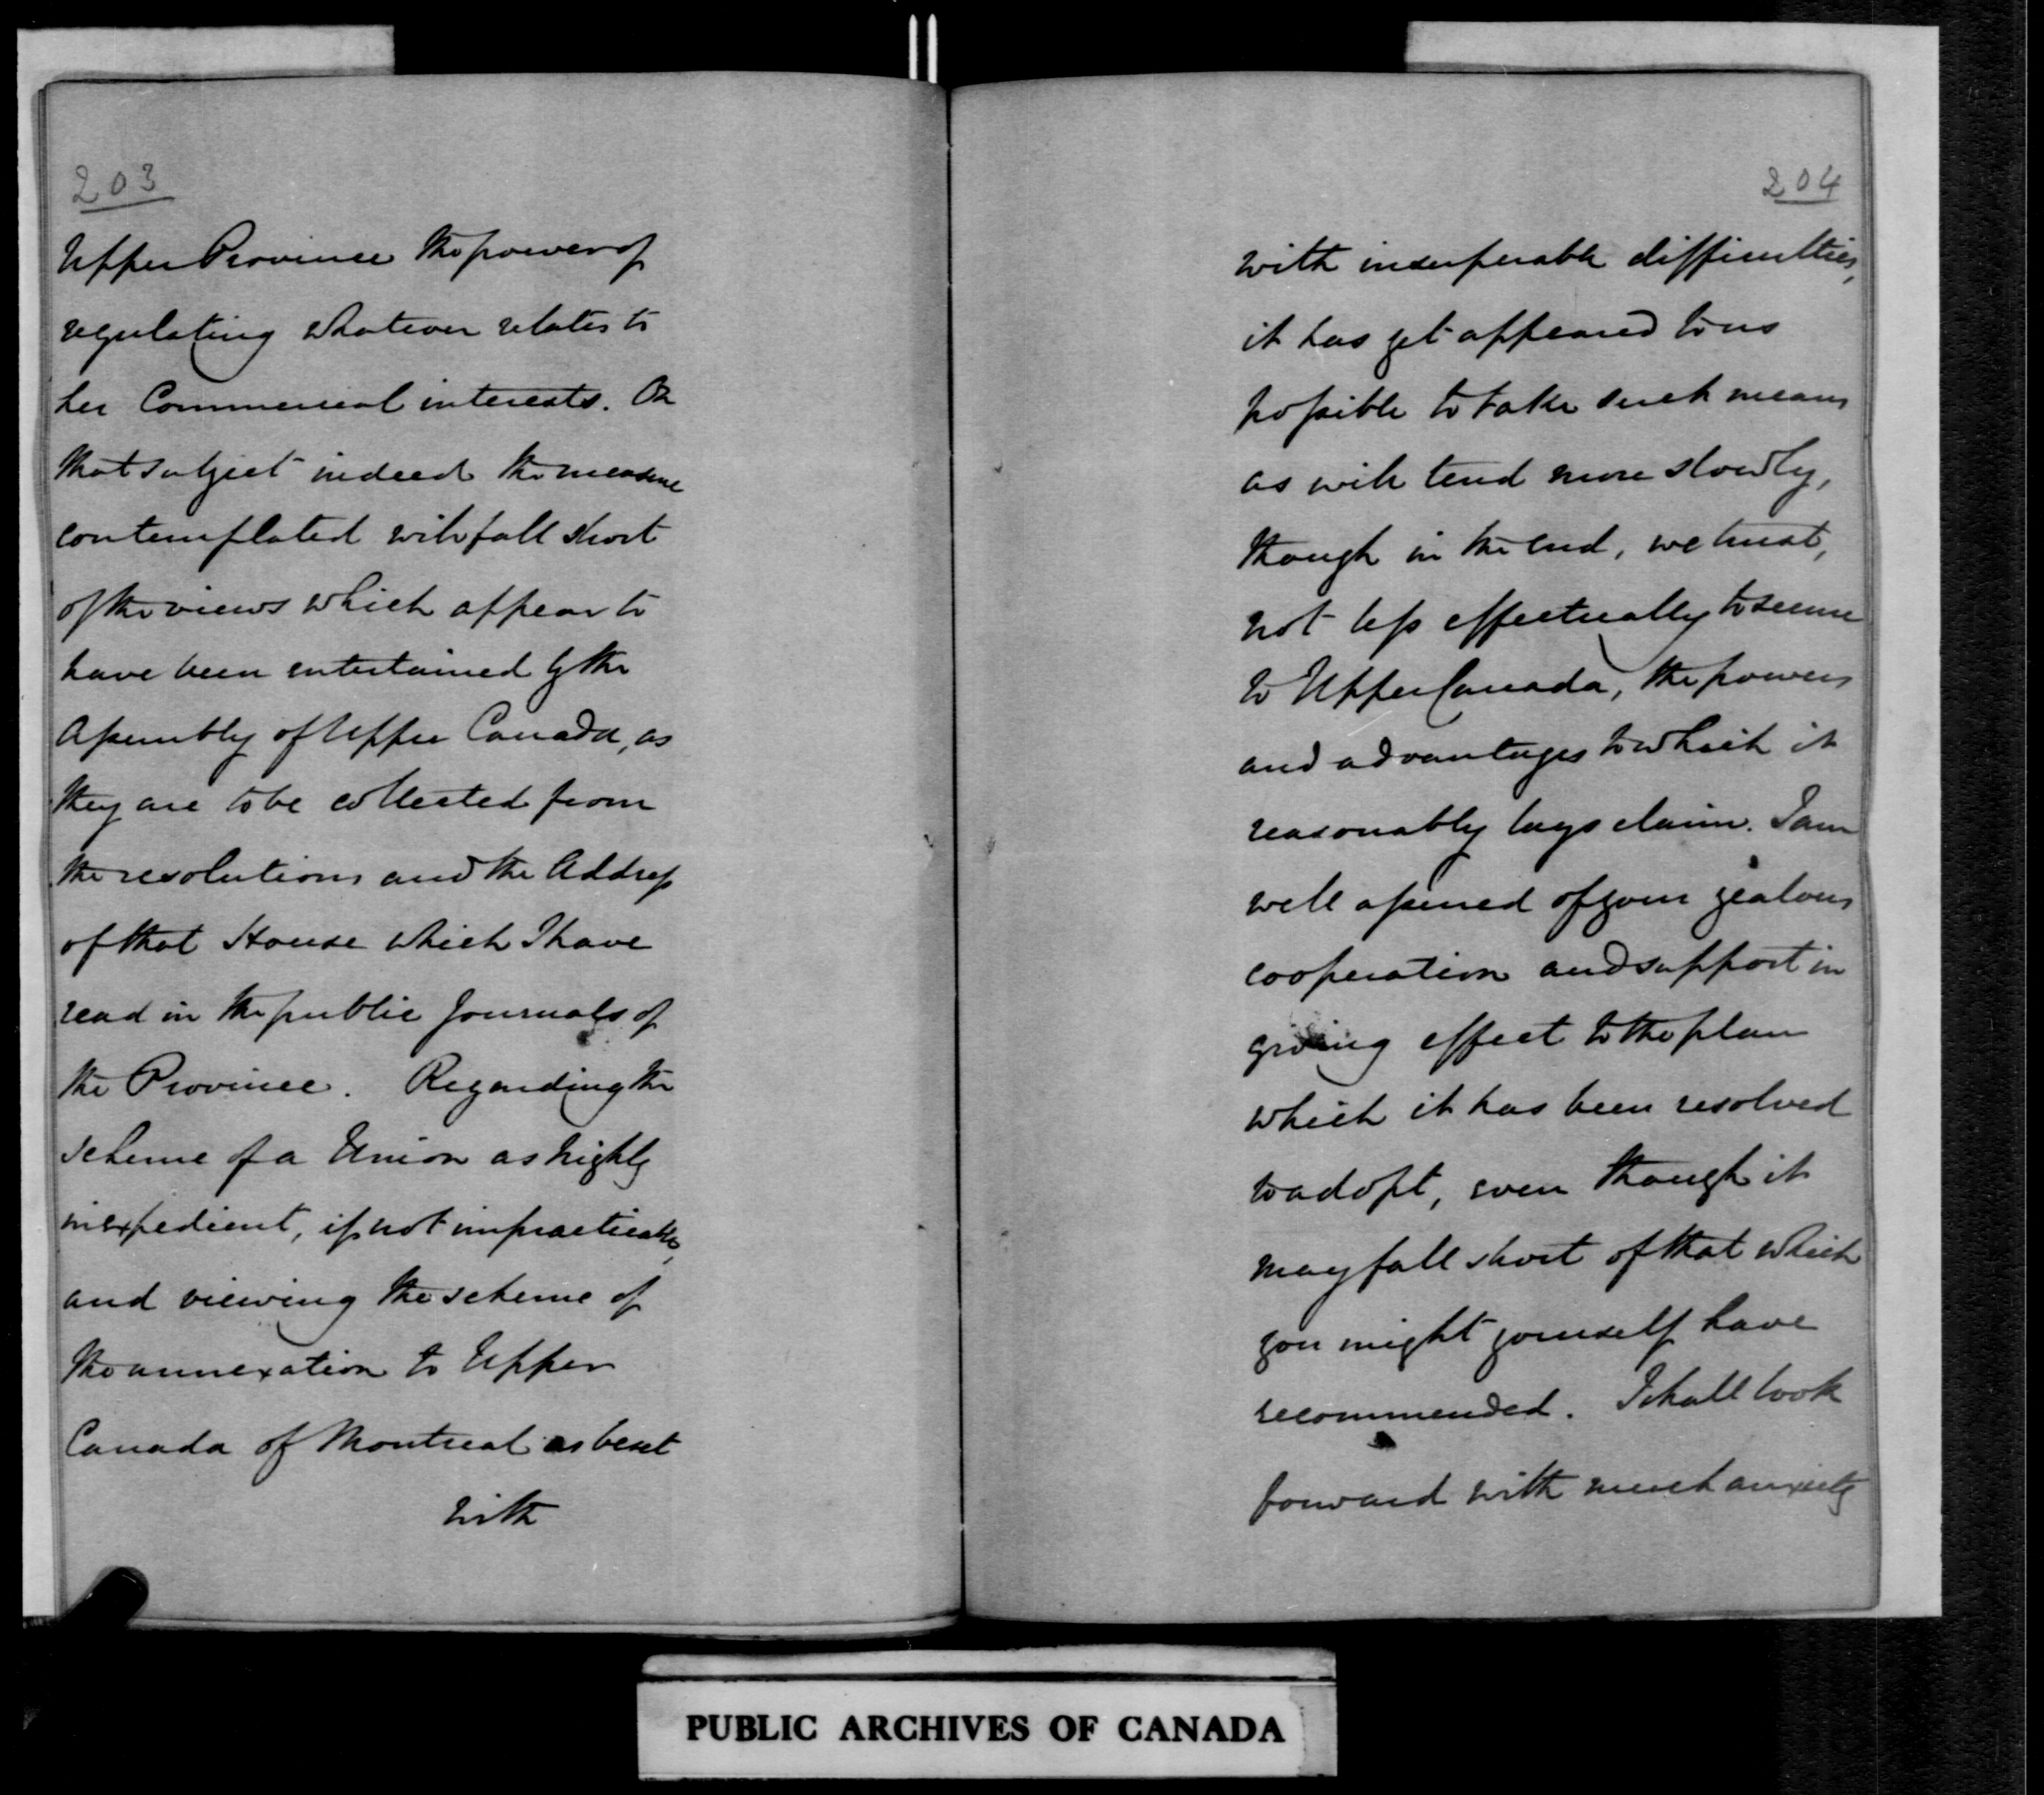 203
Upper Province the power of
regulating whatever relates to
her Commercial interests. On
that subject indeed the measure
contemplated will fall short
of the views which appear to
have been entertained by the
Assembly of Upper Canada, as
they are to be collected from
the resolutions and the Address
of that House which I have
read in the public Journals of
the Province. Regarding the
scheme of a Union as highly
inexpedient, if not impracticable,
and viewing the scheme of
the annexation to Upper
Canada of Montreal as beset
with
204
with insuperable difficulties,
it has yet appeared to us
possible to take such means
as will tend more slowly,
though in the end, we trust,
not less effectually to secure
to Upper Canada, the powers
and advantages to which it
reasonably lays claim. I am
well assured of your zealous
cooperation and support in
giving effect to the plan
which it has been resolved
to adopt, even though it
may fall short of that which
you might yourself have
recommended. I shall look
forward with much anxiety
PUBLIC ARCHIVES OF CANADA